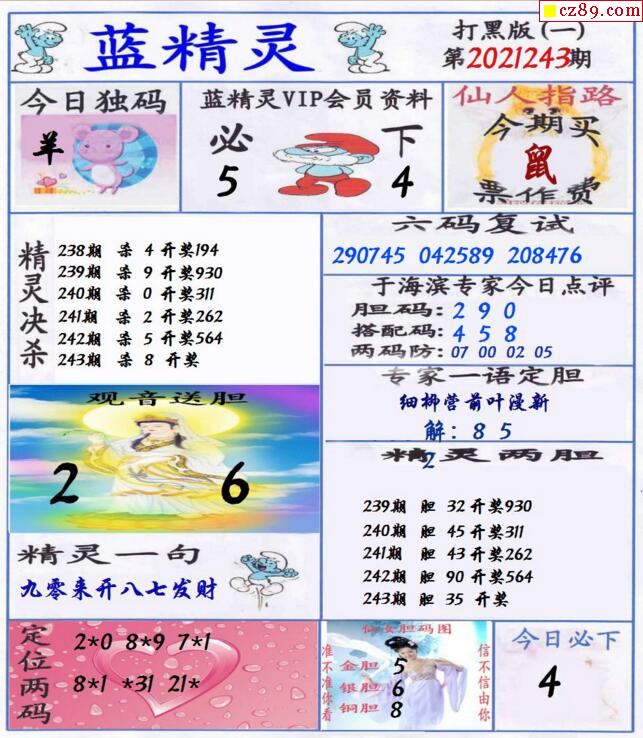 cz89.com
蓝精灵
打黑版(一)
第2021243期
今日独码
羊
蓝精灵VIP会员资料
必 下
5 4
仙人指路
今期买
鼠
票作费
精灵决杀
238期 杀 4 开奖194
239期 杀 9 开奖930
240期 杀 0 开奖311
241期 杀 2 开奖262
242期 杀 5 开奖564
243期 杀 8 开奖
六码复试
290745 042589 208476
于海滨专家今日点评
胆码: 2 9 0
搭配码: 4 5 8
两码防: 07 00 02 05
专家一语定胆
细柳营前叶漫新
解: 8 5
2
观音送胆
2 6
精灵两胆
239期 胆 32 开奖930
240期 胆 45 开奖311
241期 胆 43 开奖262
242期 胆 90 开奖564
243期 胆 35 开奖
精灵一句
九零来开八七发财
定位两码
2*0 8*9 7*1
8*1 *31 21*
仙女胆码图
准不准你看
金胆 5
银胆 6
铜胆 8
信不信由你
今日必下
4